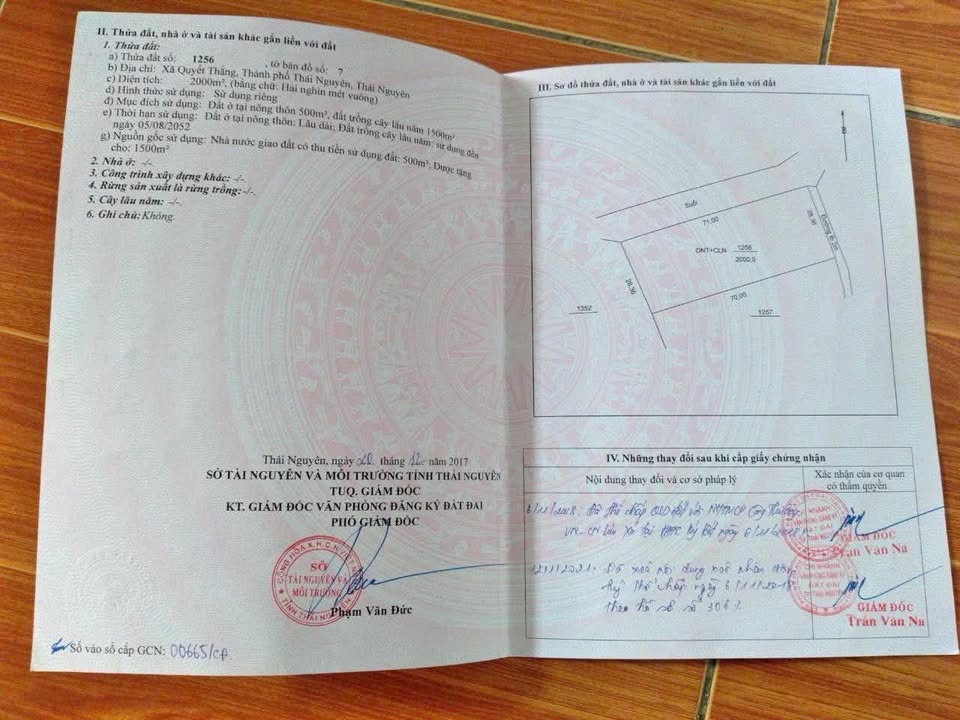 II. Thửa đất, nhà ở và tài sản khác gắn liền với đất
1. Thửa đất:
a) Thửa đất số: 1256 , tờ bản đồ số: 7
b) Địa chỉ: Xã Quyết Thắng, Thành phố Thái Nguyên, Thái Nguyên
c) Diện tích: 2000m², (bằng chữ: Hai nghìn mét vuông)
d) Hình thức sử dụng: Sử dụng riêng
đ) Mục đích sử dụng: Đất ở tại nông thôn 500m², đất trồng cây lâu năm 1500m²
e) Thời hạn sử dụng: Đất ở tại nông thôn: Lâu dài; Đất trồng cây lâu năm: sử dụng đến
ngày 05/08/2052
g) Nguồn gốc sử dụng: Nhà nước giao đất có thu tiền sử dụng đất: 500m²; Được tặng
cho; 1500m²
2. Nhà ở: -/-
3. Công trình xây dựng khác: -/-
4. Rừng sản xuất là rừng trồng: -/-
5. Cây lâu năm: -/-
6. Ghi chú: Không.
Thái Nguyên, ngày 20 tháng 12 năm 2017
SỞ TÀI NGUYÊN VÀ MÔI TRƯỜNG TỈNH THÁI NGUYÊN
TUQ. GIÁM ĐỐC
KT. GIÁM ĐỐC VĂN PHÒNG ĐĂNG KÝ ĐẤT ĐAI
PHÓ GIÁM ĐỐC
SỞ
TÀI NGUYÊN VÀ
MÔI TRƯỜNG
Phạm Văn Đức
Số vào sổ cấp GCN: 00665/CP.
III. Sơ đồ thửa đất, nhà ở và tài sản khác gắn liền với đất
B
Suối
71,00
28,36
ONT+CLN 1256
2000,0
28,36
70,00
1352
1257
IV. Những thay đổi sau khi cấp giấy chứng nhận
Nội dung thay đổi và cơ sở pháp lý
Xác nhận của cơ quan
có thẩm quyền
6/11/2018: Đã thế chấp QSD đất với NHTMCP Công Thương
ký kết ngày 6/11/2018
GIÁM ĐỐC
Trần Văn Na
12/11/2021: Đã xoá nội dung xác nhận đăng
ký thế chấp ngày 6/11/2018
theo hồ sơ số
GIÁM ĐỐC
Trần Văn Na